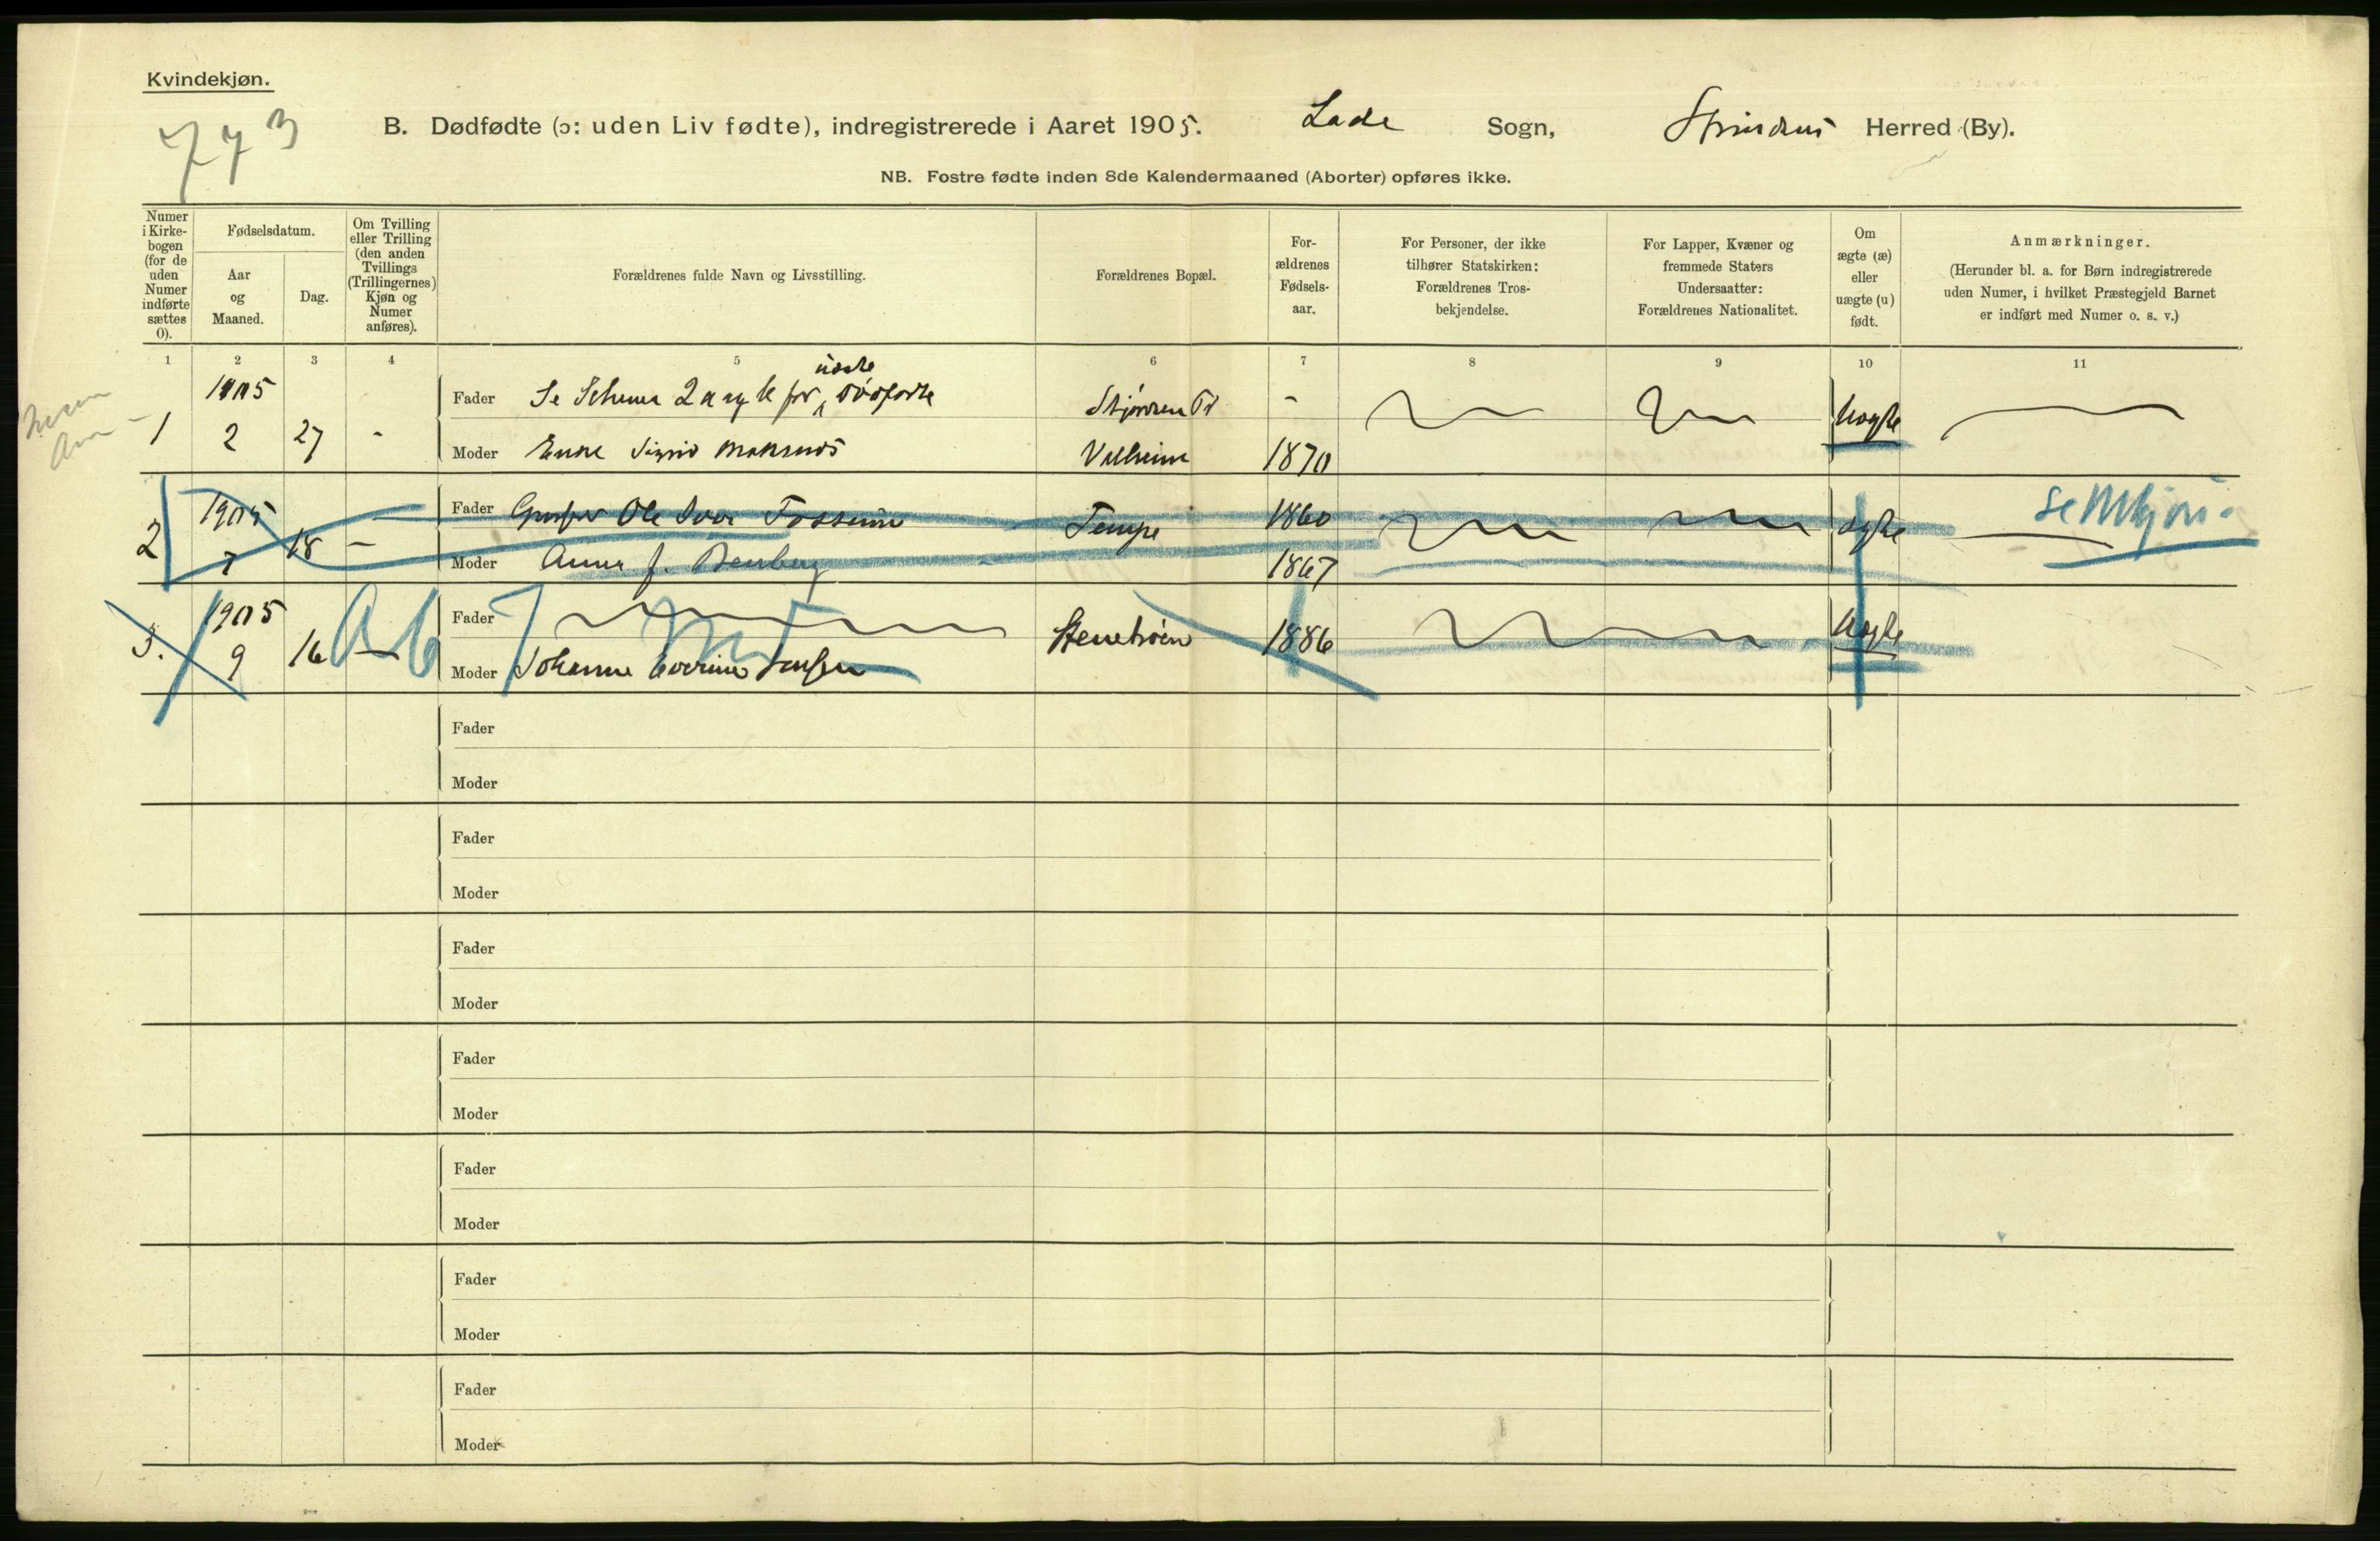 Kvindekjøn.
773
B. Dødfødte (ɔ: uden Liv fødte), indregistrerede i Aaret 1905. Lade Sogn, Strindens Herred (By).
NB. Fostre fødte inden 8de Kalendermaaned (Aborter) opføres ikke.
Numer i Kirke-bogen (for de uden Numer indførte sættes 0).
Fødselsdatum.
Aar og Maaned.
Dag.
Om Tvilling eller Trilling (den anden Tvillings (Trillingernes) Kjøn og Numer anføres).
Forældrenes fulde Navn og Livsstilling.
Forældrenes Bopæl.
For-ældrenes Fødsels-aar.
For Personer, der ikke tilhører Statskirken: Forældrenes Tros-bekjendelse.
For Lapper, Kvæner og fremmede Staters Undersaatter: Forældrenes Nationalitet.
Om ægte (æ) eller uægte (u) født.
Anmærkninger.
(Herunder bl. a. for Børn indregistrerede uden Numer, i hvilket Præstegjeld Barnet er indført med Numer o. s. v.)
1 2 3 4 5 6 7 8 9 10 11
1905 Fader Se Schema 2 for uægte dødfødte -
1 2 27 - Moder Enke Sigrid 1870 Uægte
1905 Fader Ole Fossum Tempe 1860 se Mkjøn.
2 7 18 - Moder Anna f. 1867 ægte
1905 Fader
3. 9 16 - Moder Johanna Jensen 1886 Uægte
Fader
Moder
Fader
Moder
Fader
Moder
Fader
Moder
Fader
Moder
Fader
Moder
Fader
Moder